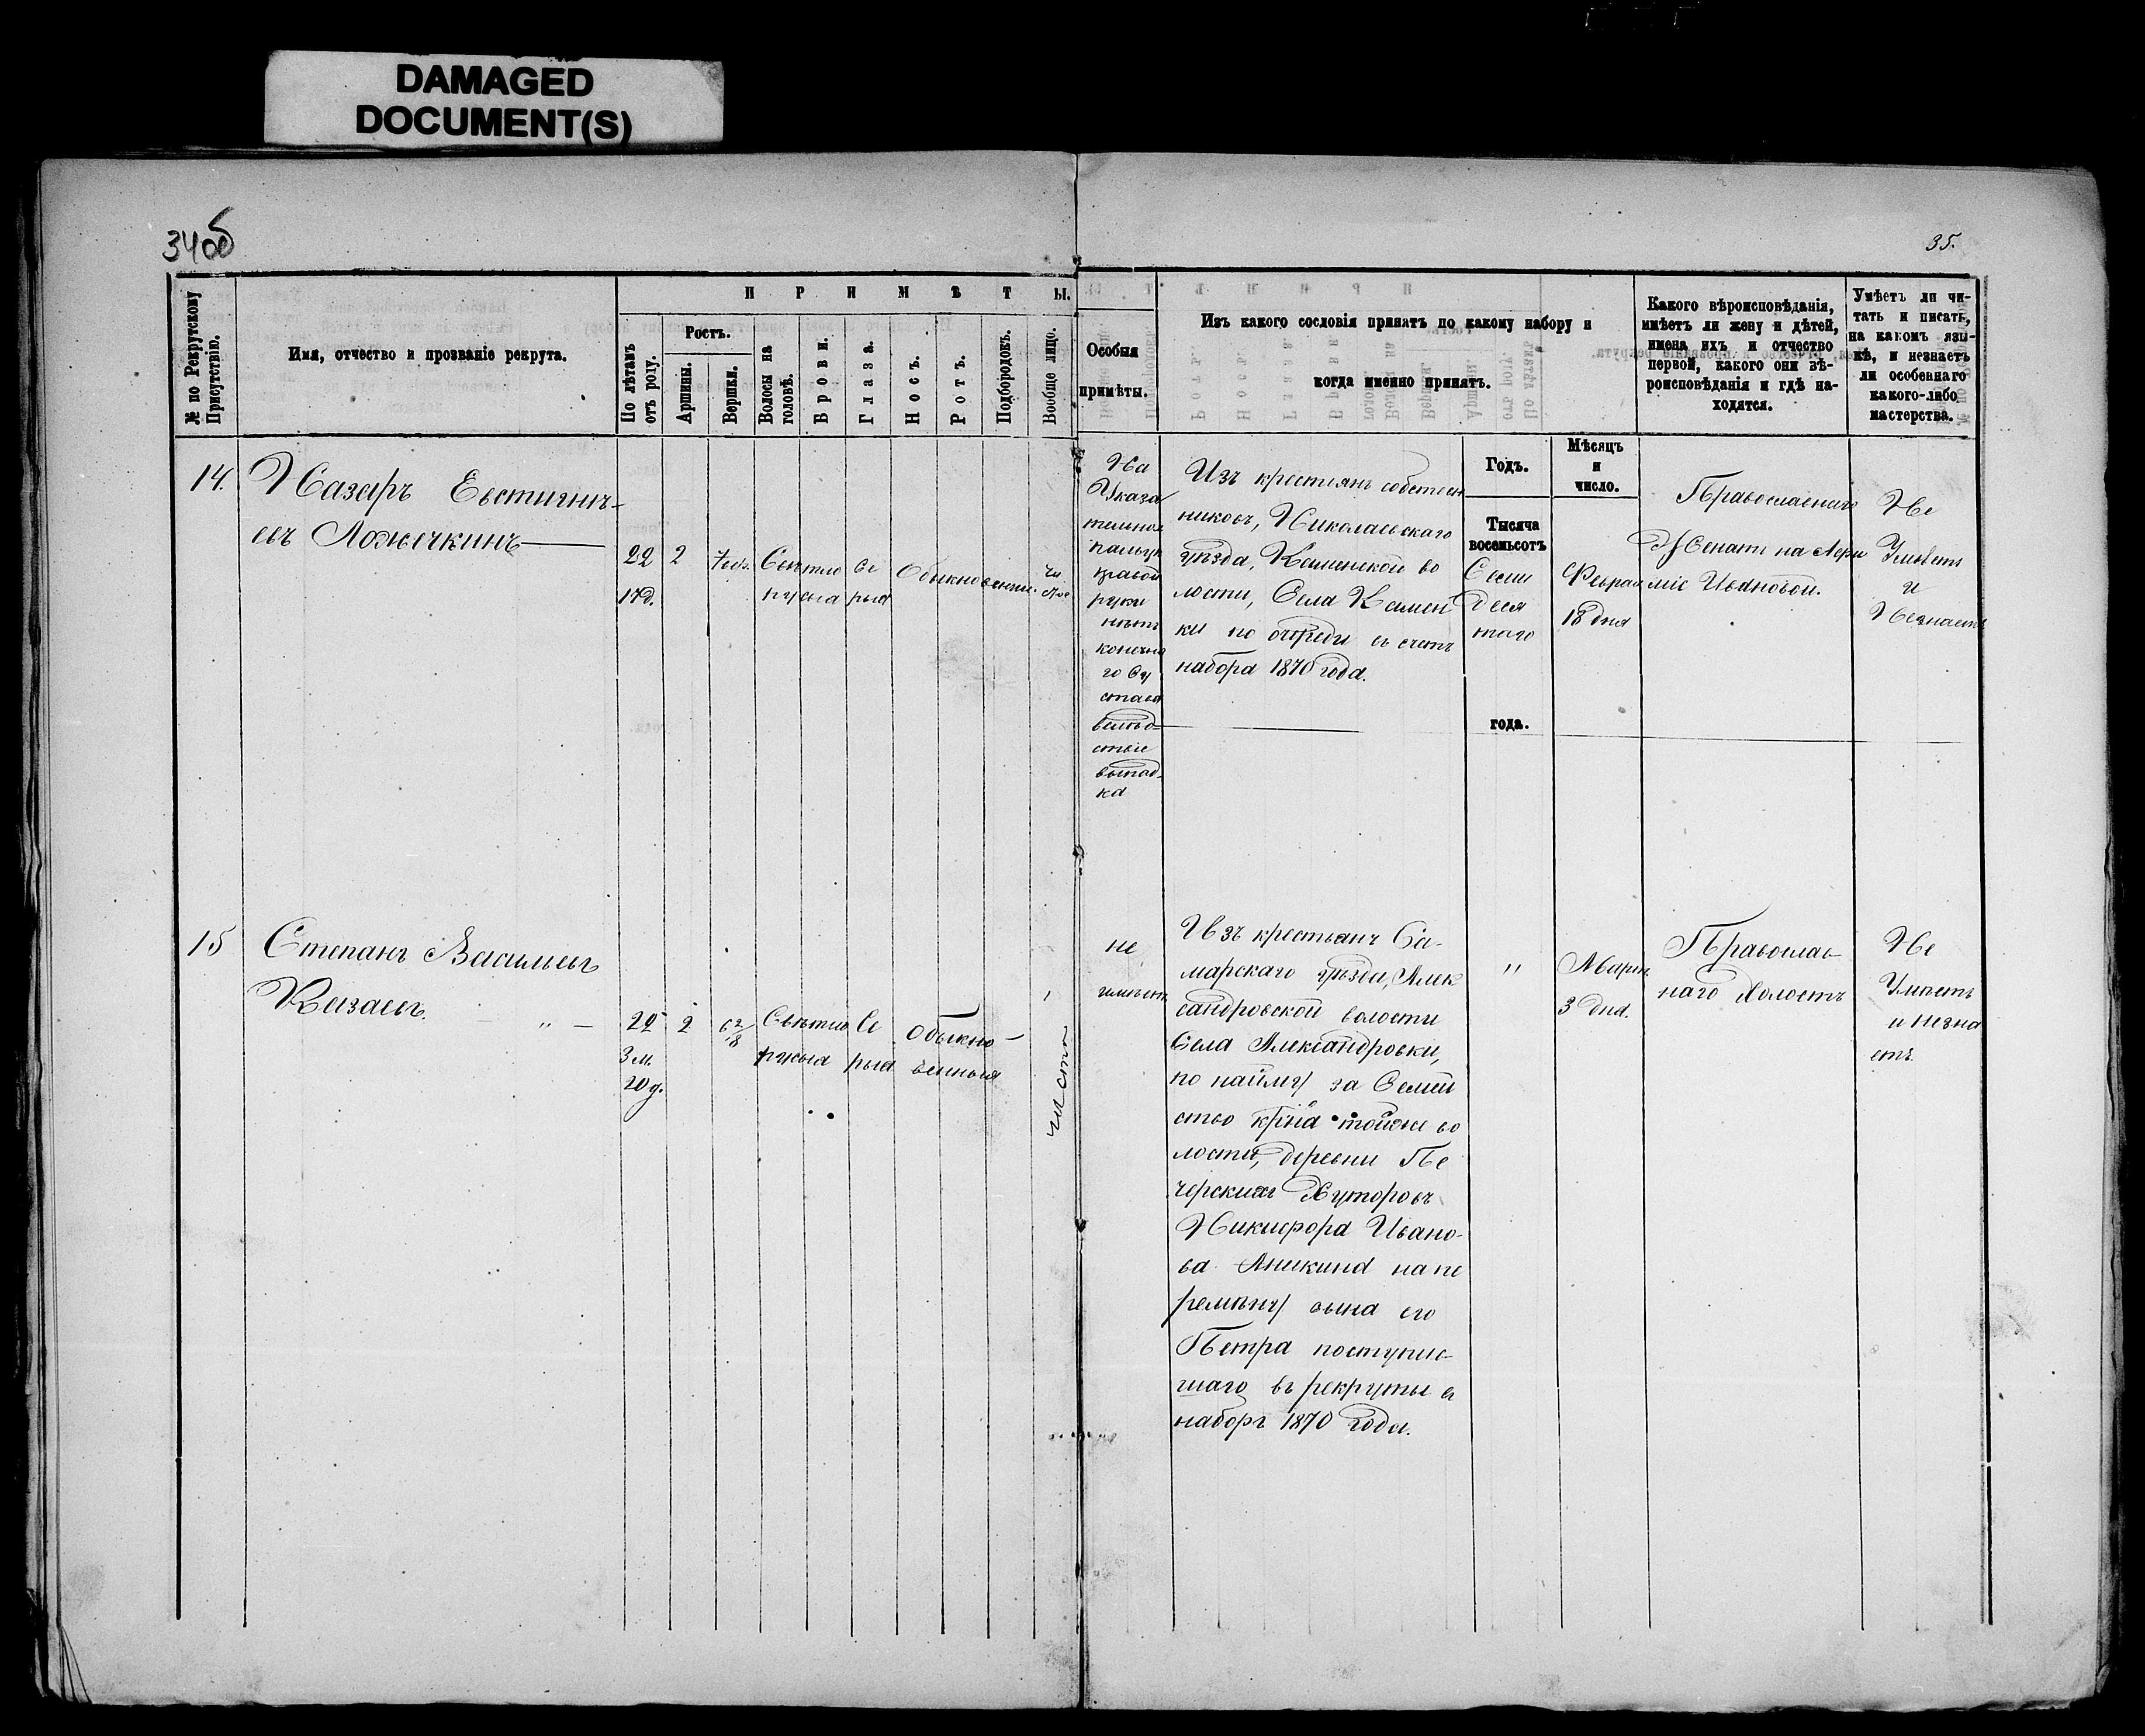 DAMAGED
DOCUMENT(S)
34об
35.
№ по Рекрутскому
Присутствію.
Имя, отчество и прозваніе рекрута.
ПРИМѢТЫ.
По лѣтамъ
отъ роду.
Ростъ.
Аршины.
Вершки.
Волосы на
головѣ.
Брови.
Глаза.
Носъ.
Ротъ.
Подбородокъ.
Вообще лицо.
Особыя
примѣты.
Изъ какого сословія принятъ по какому набору и
когда именно принятъ.
Какого вѣроисповѣданія,
имѣетъ ли жену и дѣтей,
имена ихъ и отчество
первой, какого они вѣ-
роисповѣданія и гдѣ на-
ходятся.
Умѣетъ ли чи-
тать и писать,
на какомъ язы-
кѣ, и незнаетъ
ли особеннаго
какого-либо
мастерства.
Годъ.
Мѣсяцъ
и
число.
14.
Назаръ Евстигнѣ-
евъ Ложечкинъ
22
17д.
2
Свѣтло
русыя
Сѣ
рыя
Обыкновенныя.
чи
стое
На
Указа
тельном
пальцѣ
правой
руки
нѣтъ
конечна
го Су
става
вслѣд-
ствіе
Изъ крестьянъ собствен
никовъ, Николаевскаго
уѣзда, Каменской во
лости, Села Камен
ки по очереди въ счетъ
набора 1870 года.
Тысяча
восемьсотъ
Семи
деся
таго
года.
Феврал
18 дня
Православнаго
Женатъ на Аври
міе Ивановой.
Не
Умѣетъ
и
Незнаетъ
15
Степанъ Васильевъ
Казаевъ. „ —
22
3 м.
20 д.
2
6 2/8
Свѣтло
русыя
Сѣ
рыя
Обыкно-
венныя
чисто
не
имѣетъ
Изъ крестьянъ Са-
марскаго уѣзда, Алек
сандровской волости
Села Александровки,
по найму за Семей
ство кр̃на тойже во
лости, деревни Пе
черскихъ Хуторовъ
Никифора Ивано-
ва Аникина на пе
ремѣну сына его
Петра поступив-
шаго въ рекруты въ
наборъ 1870 года.
„
Март
3 дня.
Православ-
наго Холостъ
Не
Умѣетъ
и незна
етъ.